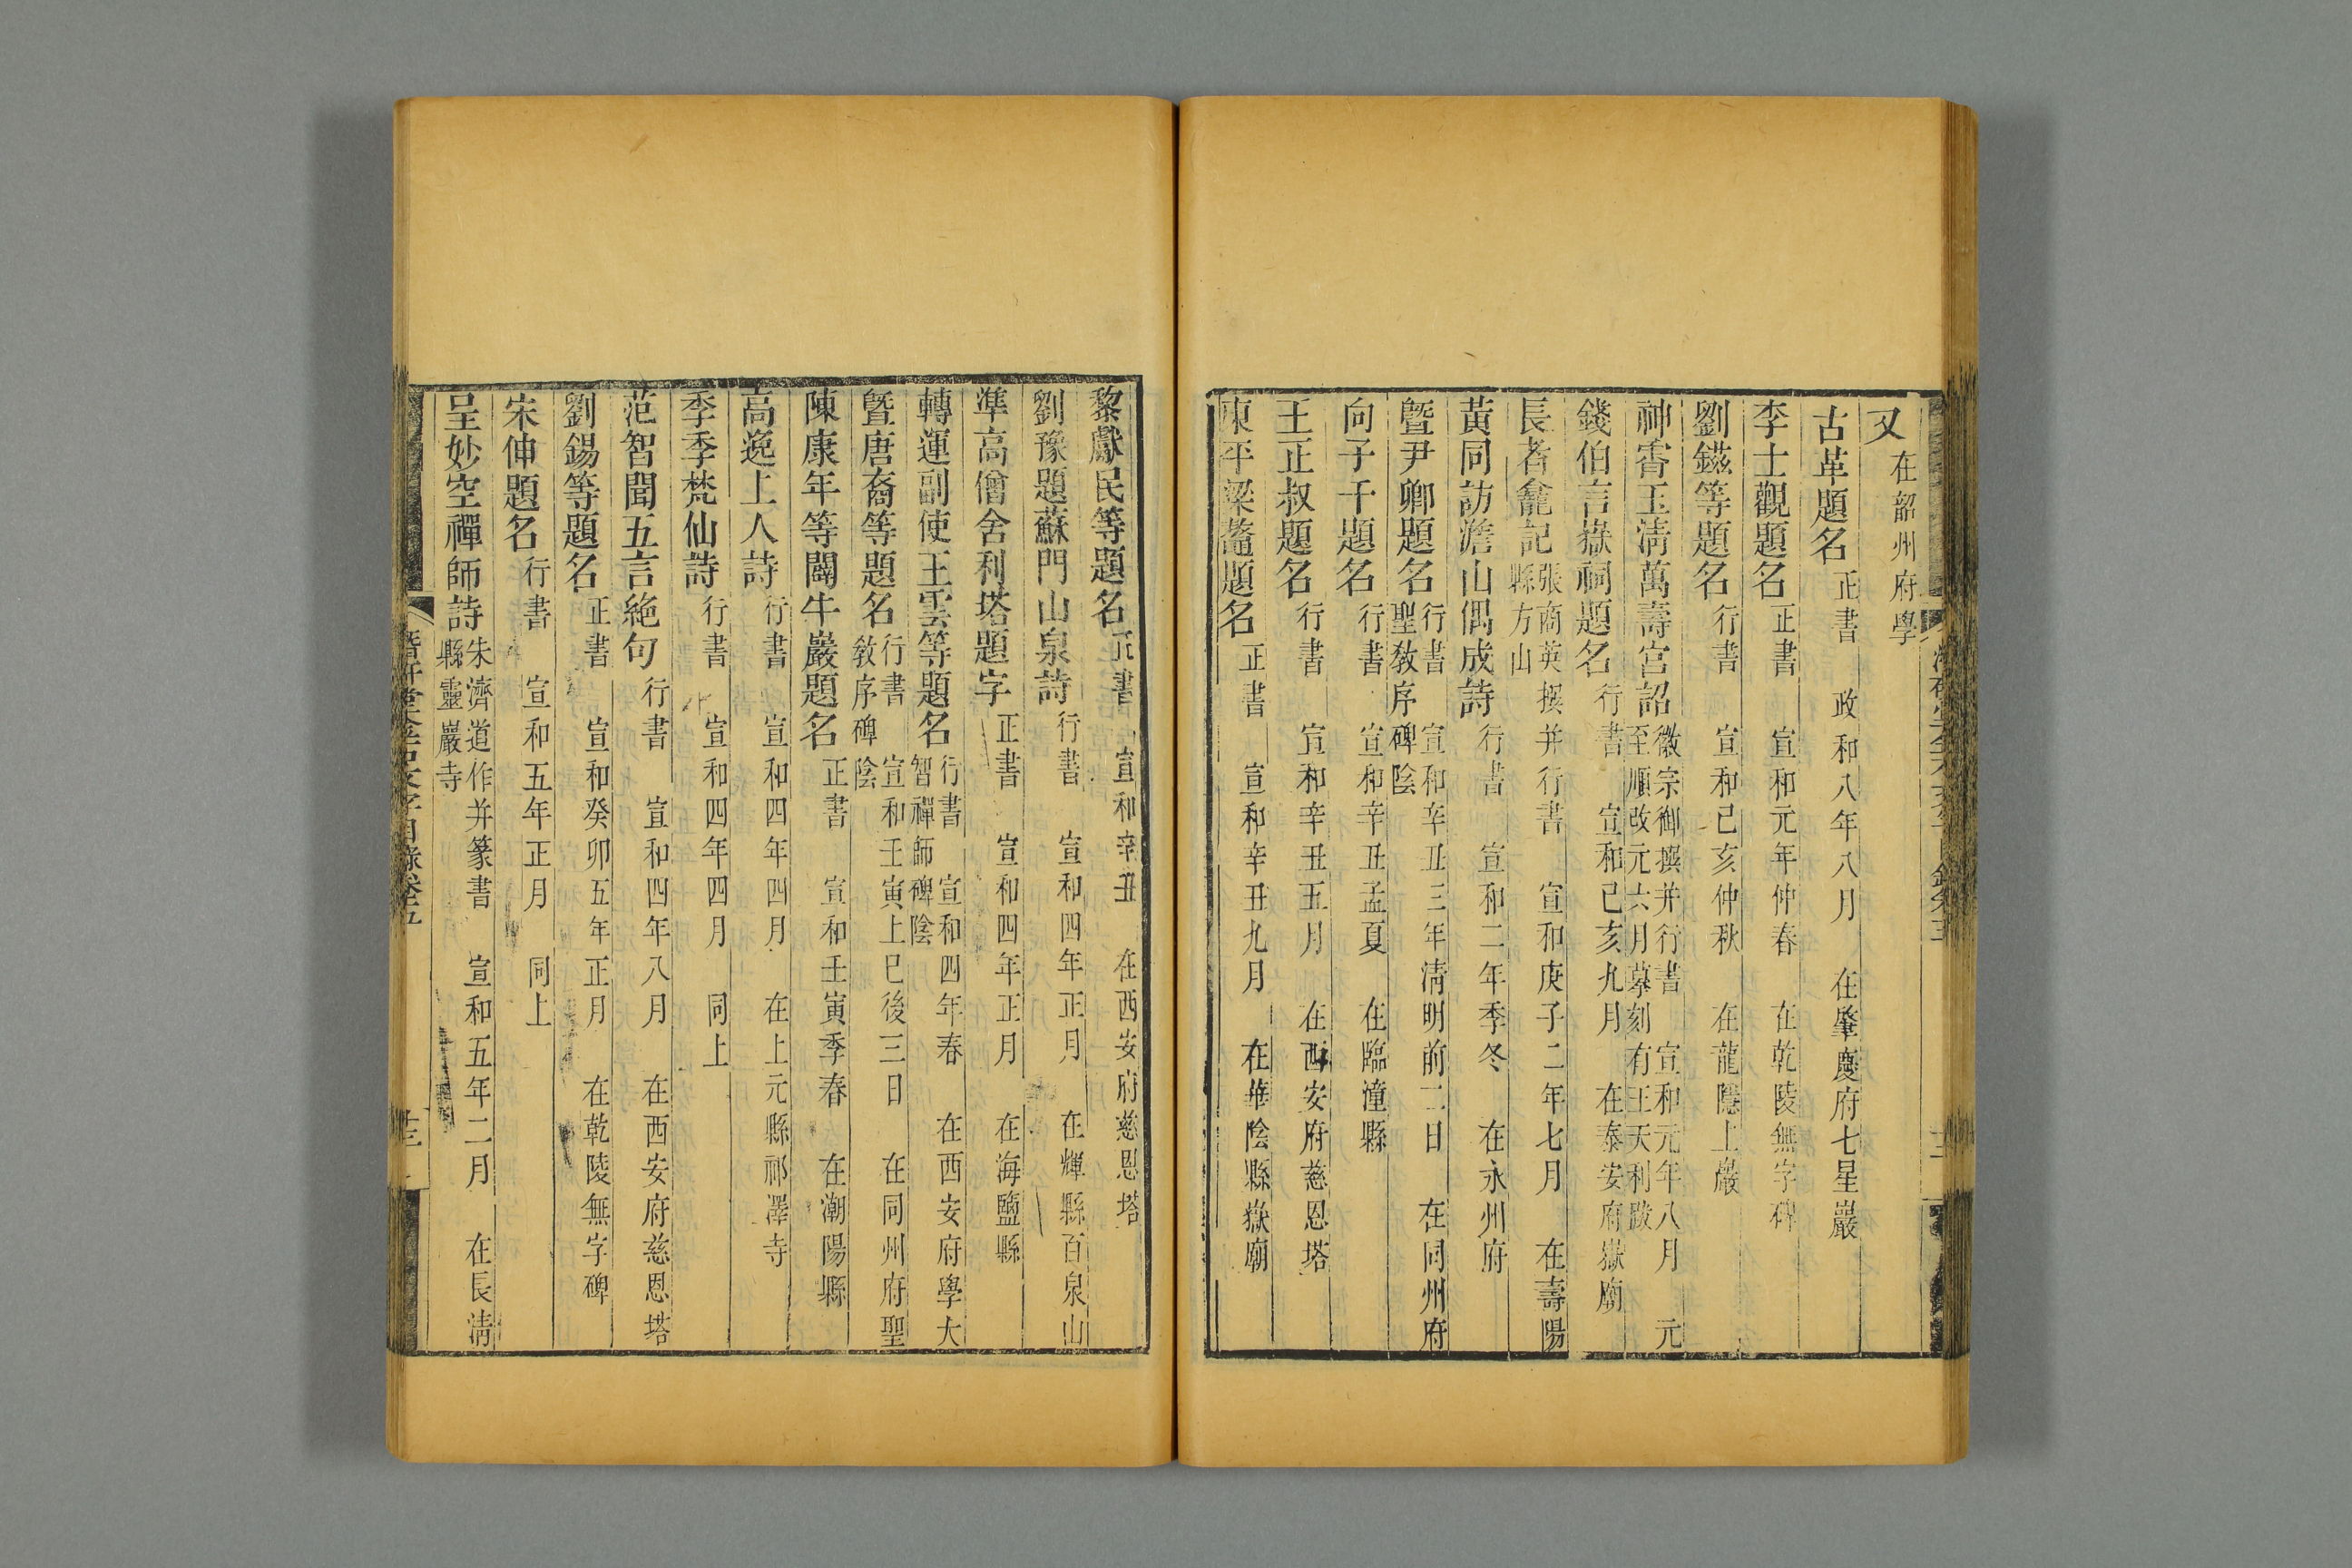 又 在韶州府學
古革題名 正書 政和八年八月 在肇慶府七星巖
李士觀題名 正書 宣和元年仲春 在乾陵無字碑
劉鎡等題名 行書 宣和己亥仲秋 在龍隱上巖
神霄玉淸萬壽宮詔 徽宗御撰并行書 宣和元年八月 元至順改元六月摹刻 有王天利跋
錢伯言嶽祠題名 行書 宣和己亥九月 在泰安府嶽廟
長者龕記 張商英撰并行書 宣和庚子二年七月 在壽陽縣方山
黃同訪澹山偶成詩 行書 宣和二年季冬 在永州府
曁尹卿題名 行書 宣和辛丑三年淸明前二日 在同州府聖敎序碑陰
向子千題名 行書 宣和辛丑孟夏 在臨潼縣
王正叔題名 行書 宣和辛丑五月 在西安府慈恩塔
東平梁題名 正書 宣和辛丑九月 在華陰縣嶽廟
黎獻民等題名 正書 宣和辛丑 在西安府慈恩塔
劉豫題蘇門山泉詩 行書 宣和四年正月 在輝縣百泉山
準高僧舍利塔題字 正書 宣和四年正月 在海鹽縣
轉運副使王雲等題名 行書 宣和四年春 在西安府學大智禪師碑陰
曁唐裔等題名 行書 宣和壬寅上巳後三日 在同州府聖敎序碑陰
陳康年等闢牛巖題名 正書 宣和壬寅季春 在潮陽縣
高逸上人詩 行書 宣和四年四月 在上元縣祁澤寺
李季梵仙詩 行書 宣和四年四月 同上
范智聞五言絶句 行書 宣和四年八月 在西安府慈恩塔
劉錫等題名 正書 宣和癸卯五年正月 在乾陵無字碑
宋伸題名 行書 宣和五年正月 同上
呈妙空禪師詩 朱濟道作并篆書 宣和五年二月 在長淸縣靈巖寺
潛研堂金石文字目錄卷五